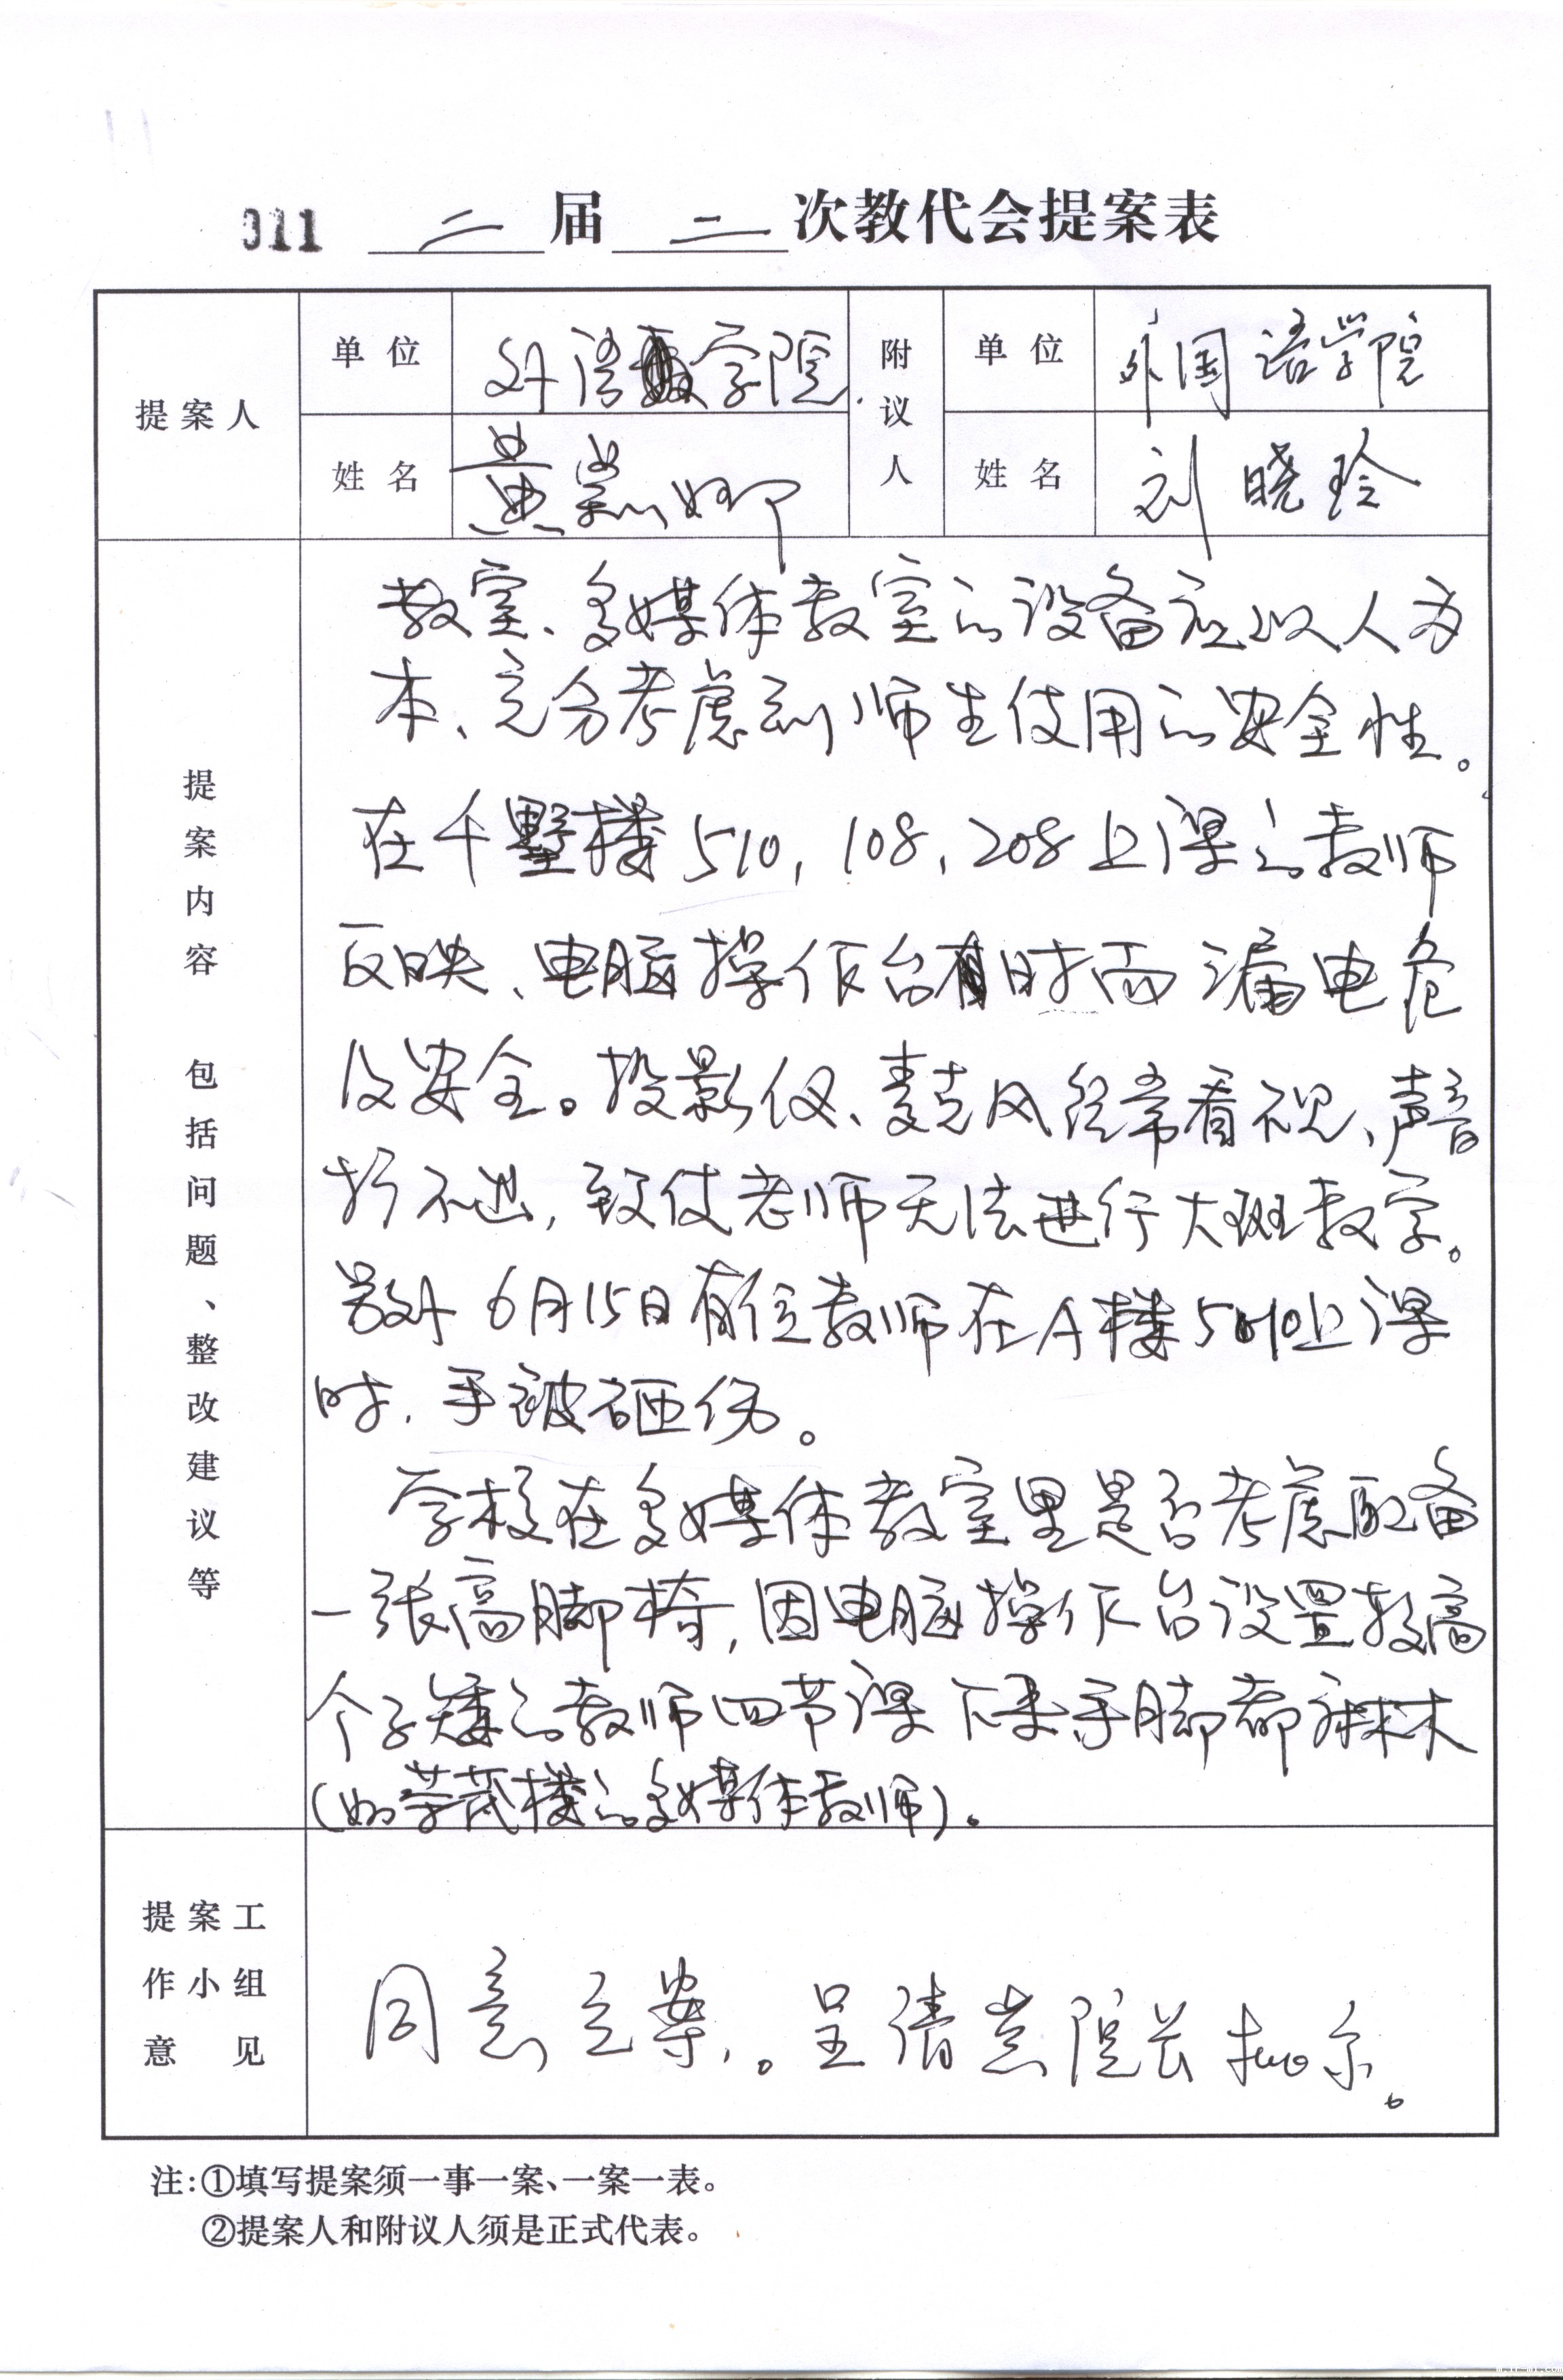 011 二届二次教代会提案表
提案人
单位
外语学院
附议人
单位
外国语学院
姓名
黄崇娜
姓名
刘晓玲
提案内容 包括问题、整改建议等
教室、多媒体教室的设备应以人为
本、充分考虑到师生使用的安全性。
在千墅楼510,108,208上课的教师
反映、电脑操作台有时而漏电危
及安全。投影仪、麦克风经常看不见、声音
扩不出,致使老师无法进行大班教学。
另外6月15日有位教师在A楼510上课
时,手被砸伤。
学校在多媒体教室里是否考虑配备
一张高脚椅,因电脑操作台设置较高
个子矮的教师四节课下来手脚都麻木
(如芳茂楼的多媒体教师)。
提案工
作小组
意见
同意立案。呈请院长批示。
注:①填写提案须一事一案、一案一表。
②提案人和附议人须是正式代表。